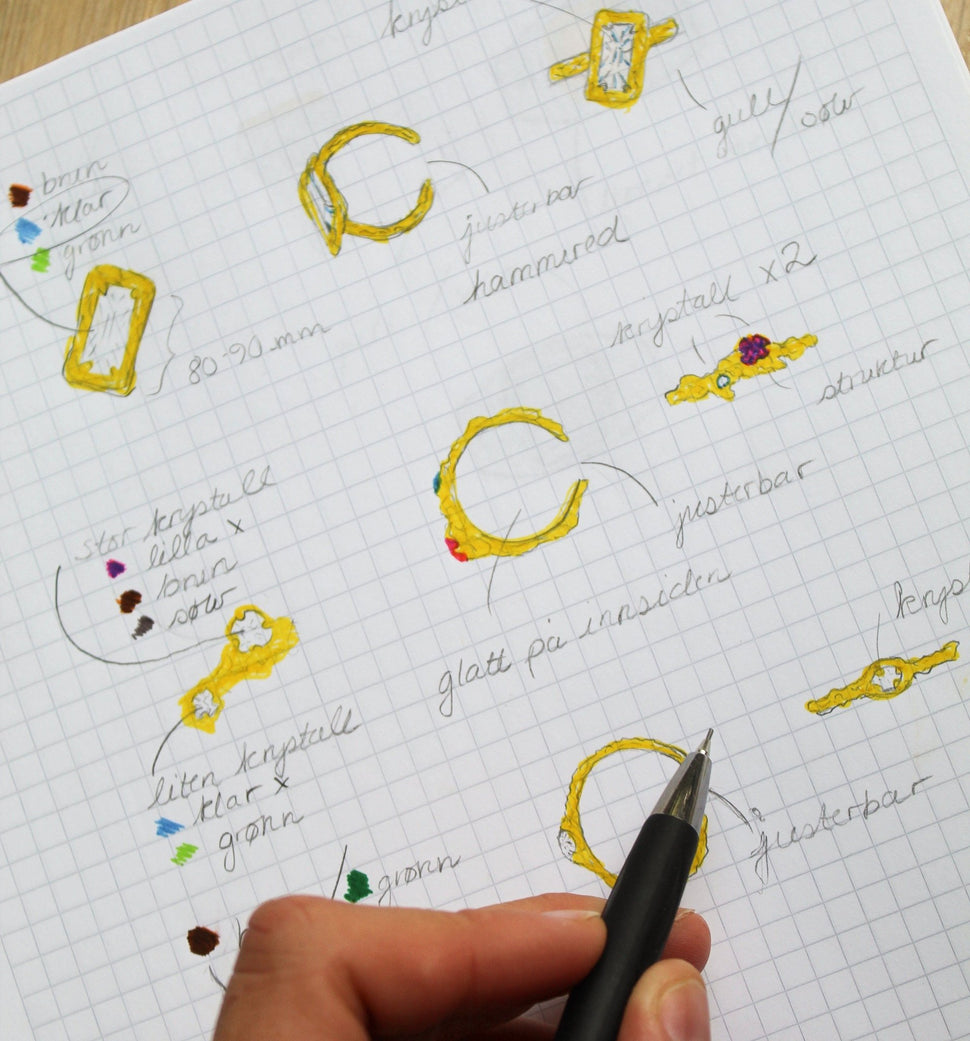 gull/
søw
brun
klar
grønn
justerbar
hammered
80-90 mm
krystall x2
struktur
justerbar
stor krystall
lilla x
brun
søw
glatt på innsiden
krys
liten krystall
klar x
grønn
justerbar
grønn